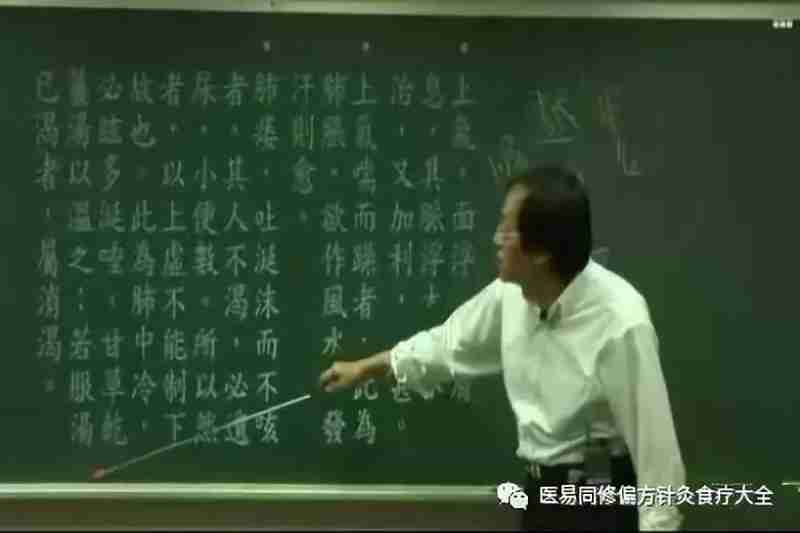 上氣，面浮
息，其脈浮大
治，又加利，甚。
上氣，喘而躁者，此為
肺脹，欲作風水，發
汗則愈。
肺痿，吐涎沫而不咳
者，其人不渴，必遺
尿，小便數。所以然
者，以上虛不能制下
故也。此為肺中冷，
必眩多涎唾。甘草乾
薑湯以溫之；若服湯
已渴者，屬消渴。
医易同修偏方针灸食疗大全